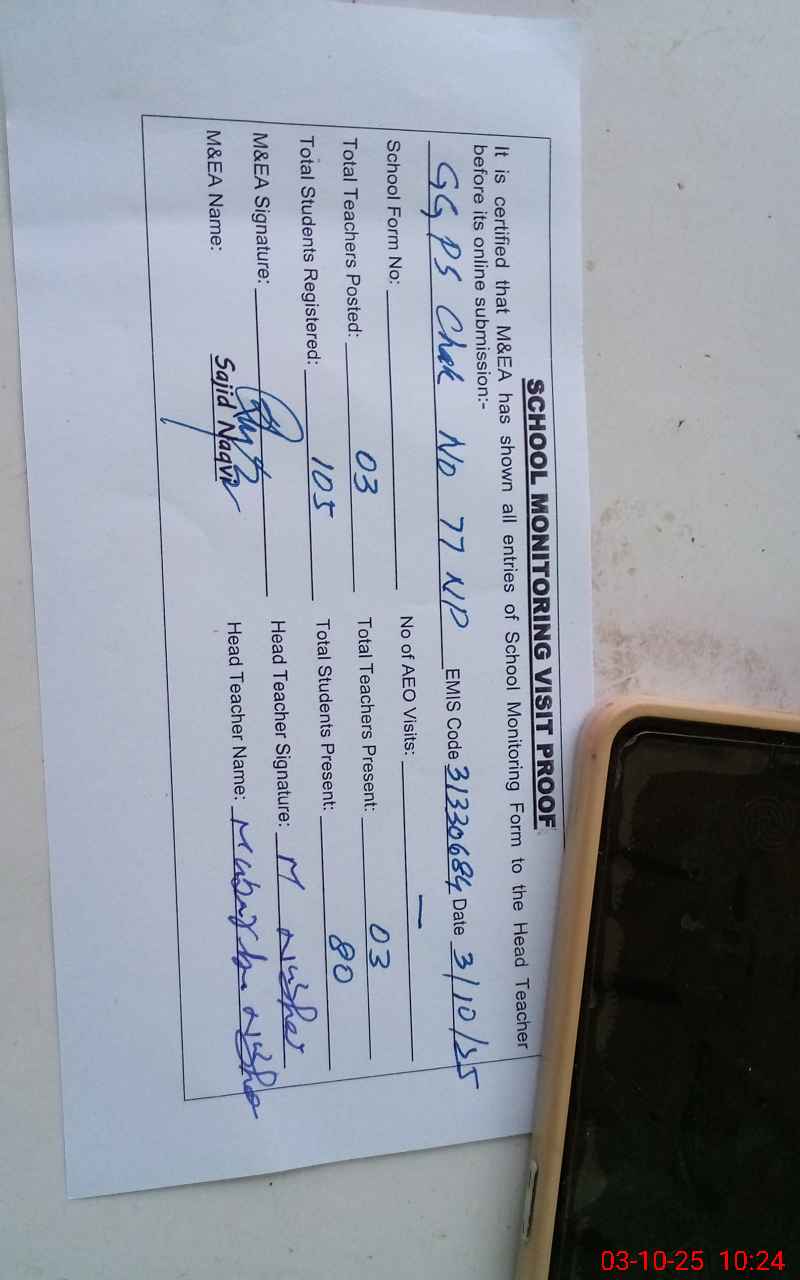 SCHOOL MONITORING VISIT PROOF
It is certified that M&EA has shown all entries of School Monitoring Form to the Head Teacher
before its online submission:-
GGPS Chak No 77 NP EMIS Code 31330684 Date 3/10/25
School Form No: No of AEO Visits: —
Total Teachers Posted: 03 Total Teachers Present: 03
Total Students Registered: 105 Total Students Present: 80
M&EA Signature: Head Teacher Signature: M
M&EA Name: Sajid Naqvi Head Teacher Name:
03-10-25 10:24